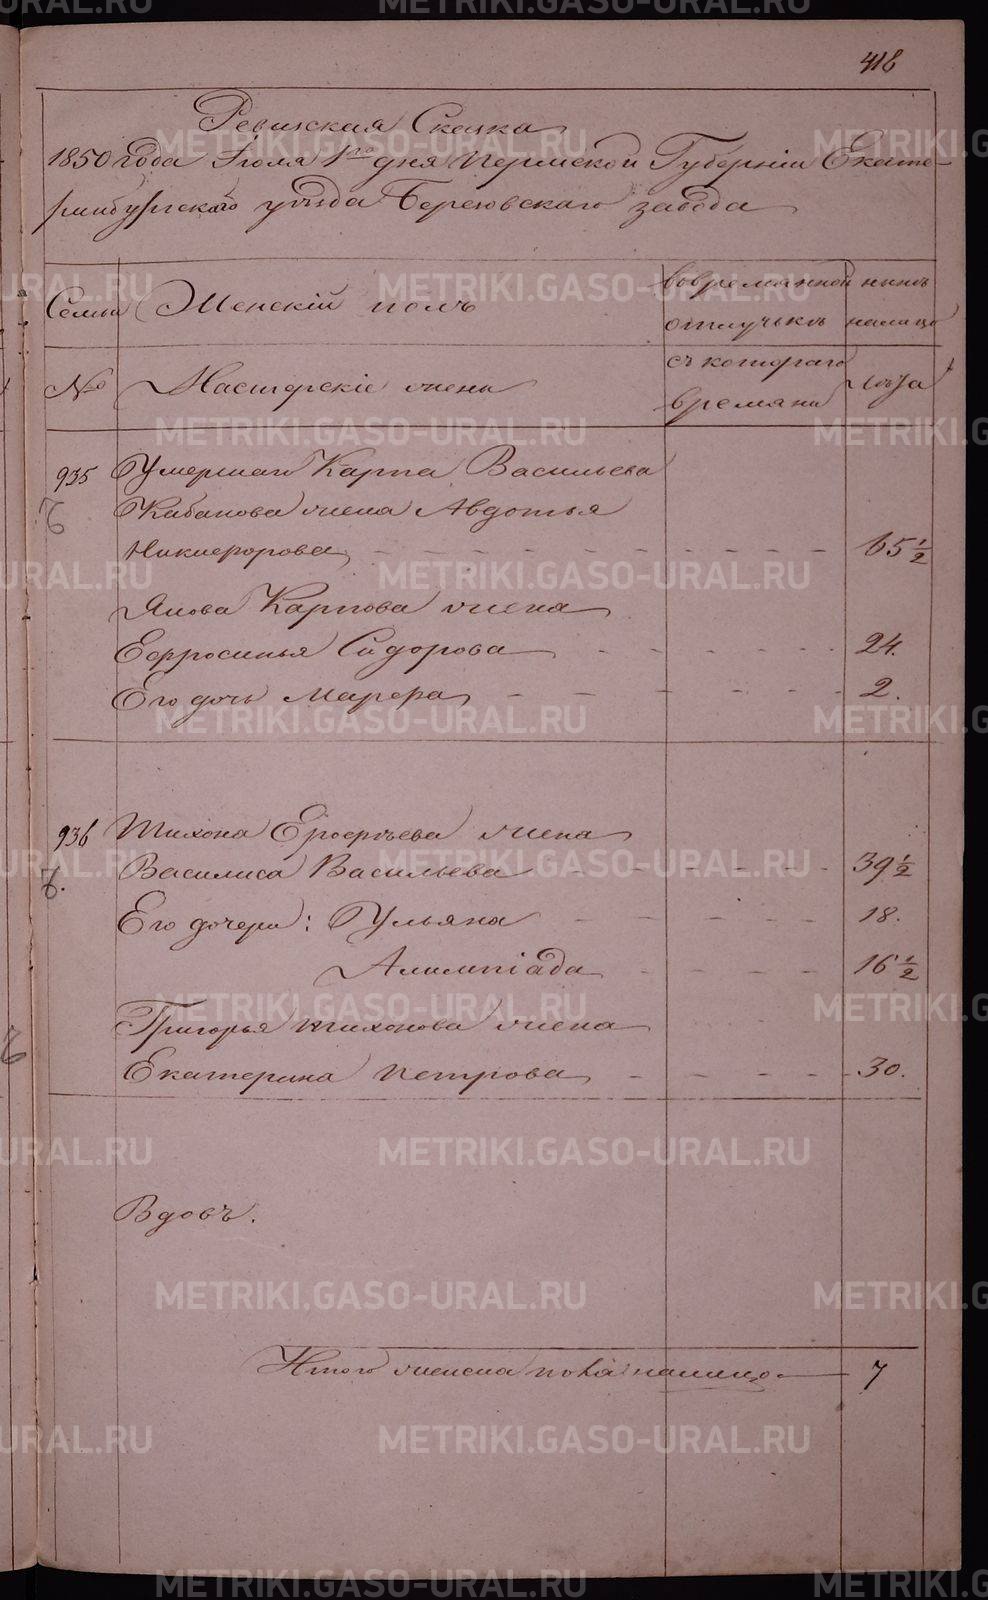 418
Ревизская Сказка
1850 года Іюля 1го дня Пермской Губерніи Екате-
ринбургскаго уѣзда Березовскаго завода
Семьи Женскій полъ во временной нынѣ
отлучькѣ налицо
№ Мастерскіе жены съ котораго лѣта
времяни
935 Умершаго Карпа Васильева
Кабанова жена Авдотья
Никифорова 65 1/2
Якова Карпова жена
Ефросинья Сидорова 24.
Его дочь Марфа 2.
936 Тихона Ерофѣева жена
Василиса Васильева 39 1/2
Его дочери: Ульяна 18.
Алимпіада 16 1/2
Григорья Тихонова жена
Екатерина Петрова 30.
Вдовъ.
Итого женска пола налицо 7
METRIKI.GASO-URAL.RU